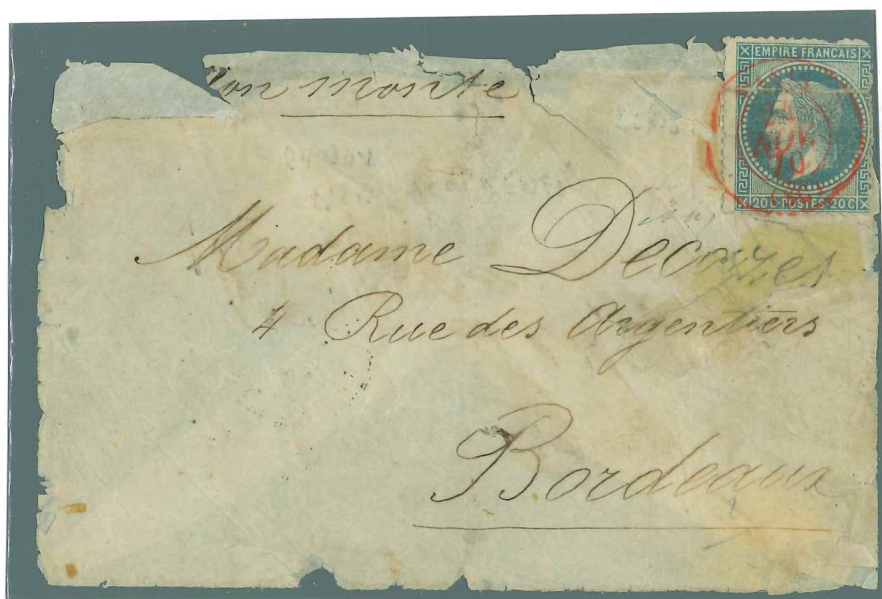 on monté
EMPIRE FRANCAIS
NOV.
20 C·POSTES·20 C
Madame Decazes
4 Rue des Argentiers
Bordeaux